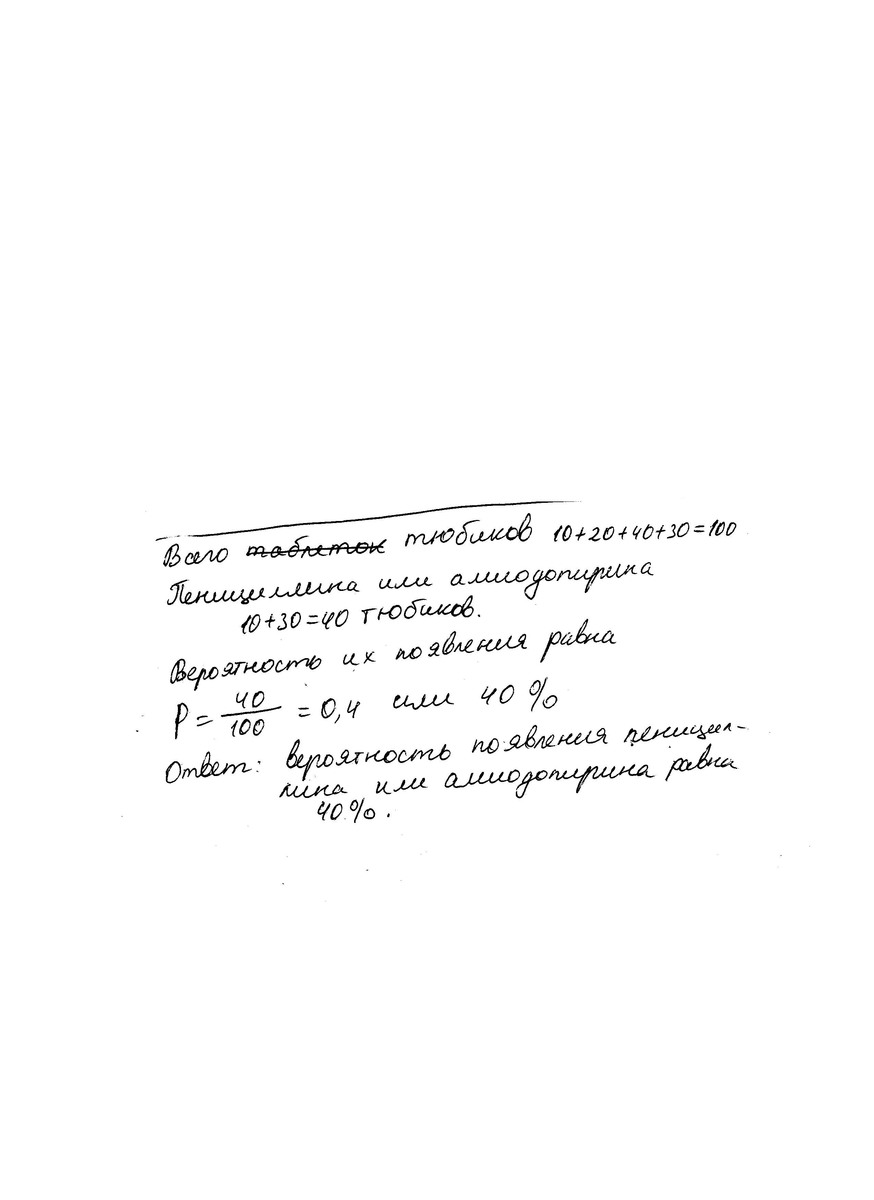 Всего таблеток тюбиков 10+20+40+30=100
Пенициллина или амиодопирина
10+30=40 тюбиков.
Вероятность их появления равна
P = 40/100 = 0,4 или 40 %
Ответ: вероятность появления пеницил-
лина или амиодопирина равна
40%.